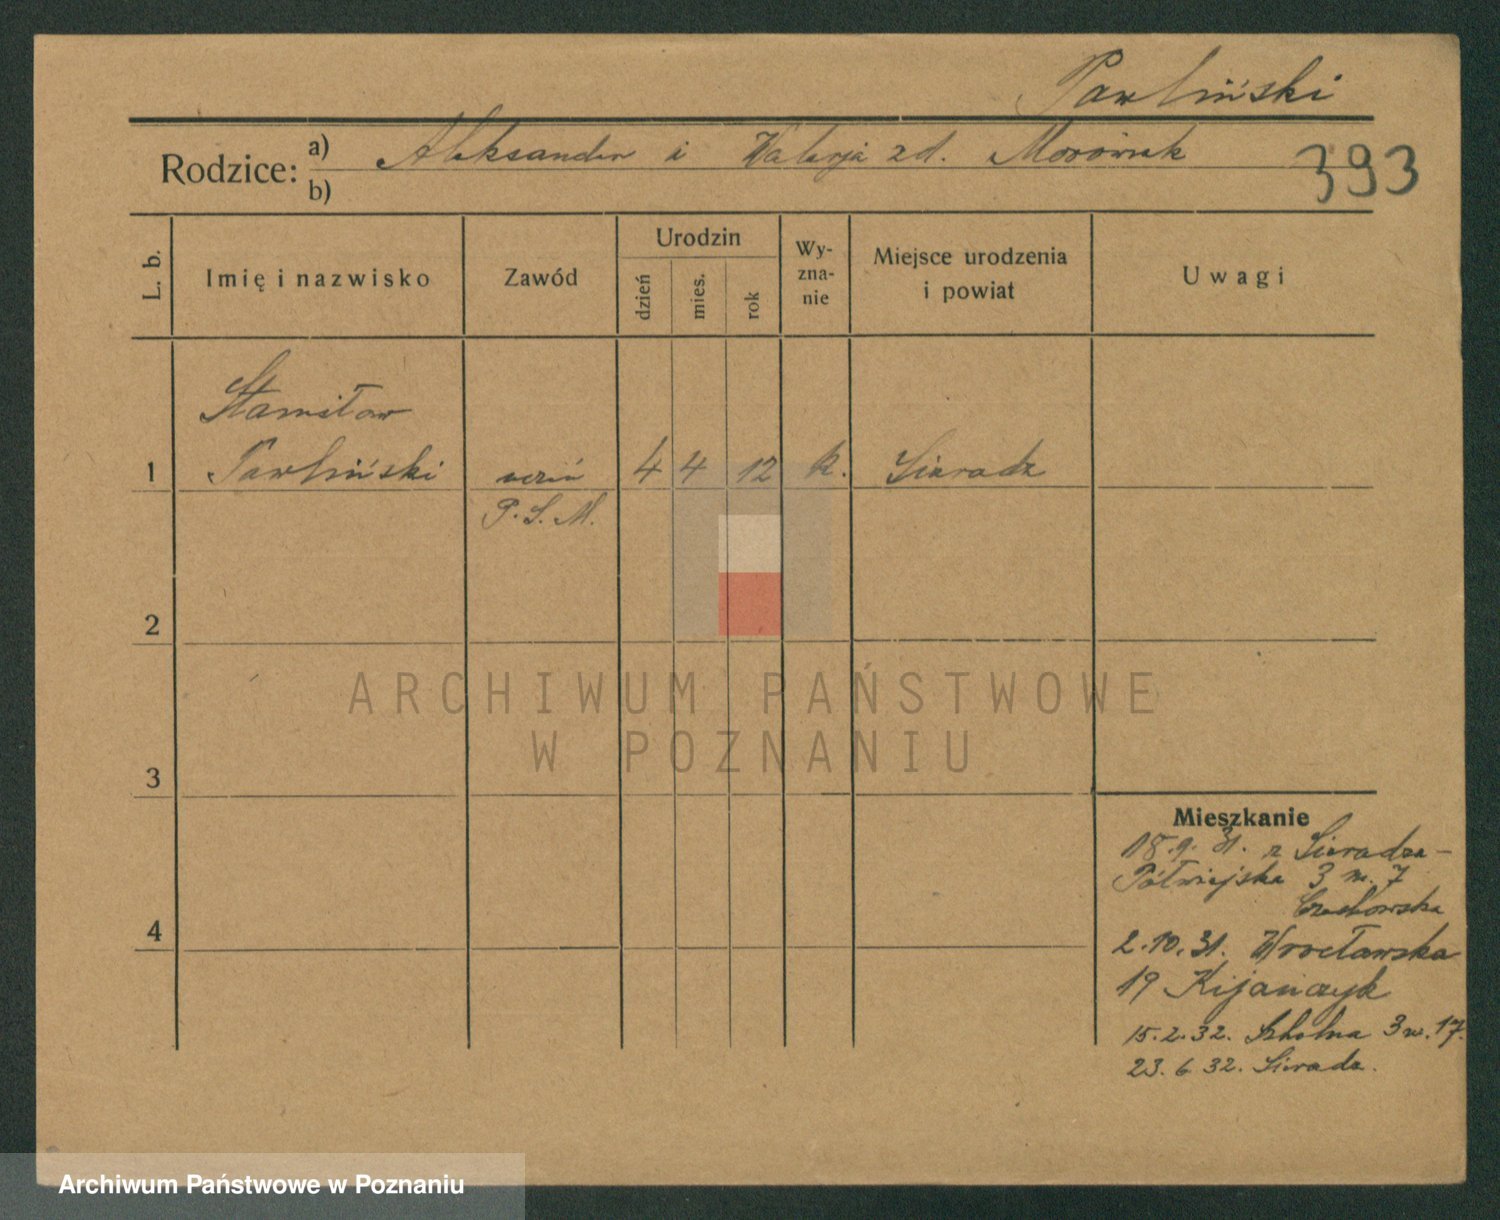 Pawliński
Rodzice: a) Aleksander i Walerja zd. Morówsk
b)
393
L. b.
Imię i nazwisko
Zawód
Urodzin
dzień
mies.
rok
Wy-
zna-
nie
Miejsce urodzenia
i powiat
Uwagi
Stanisław
1 Pawliński uczeń 4 4 12 k. Sieradz
P.S.M.
2
ARCHIWUM PAŃSTWOWE
W POZNANIU
3
4
Mieszkanie
18.9.31. z Sieradza –
Półwiejska 3 m. 7
2.10.31. Wrocławska
19 Kijańczyk
15.2.32. Szkolna 3 m. 17.
23.6.32. Sieradz.
Archiwum Państwowe w Poznaniu